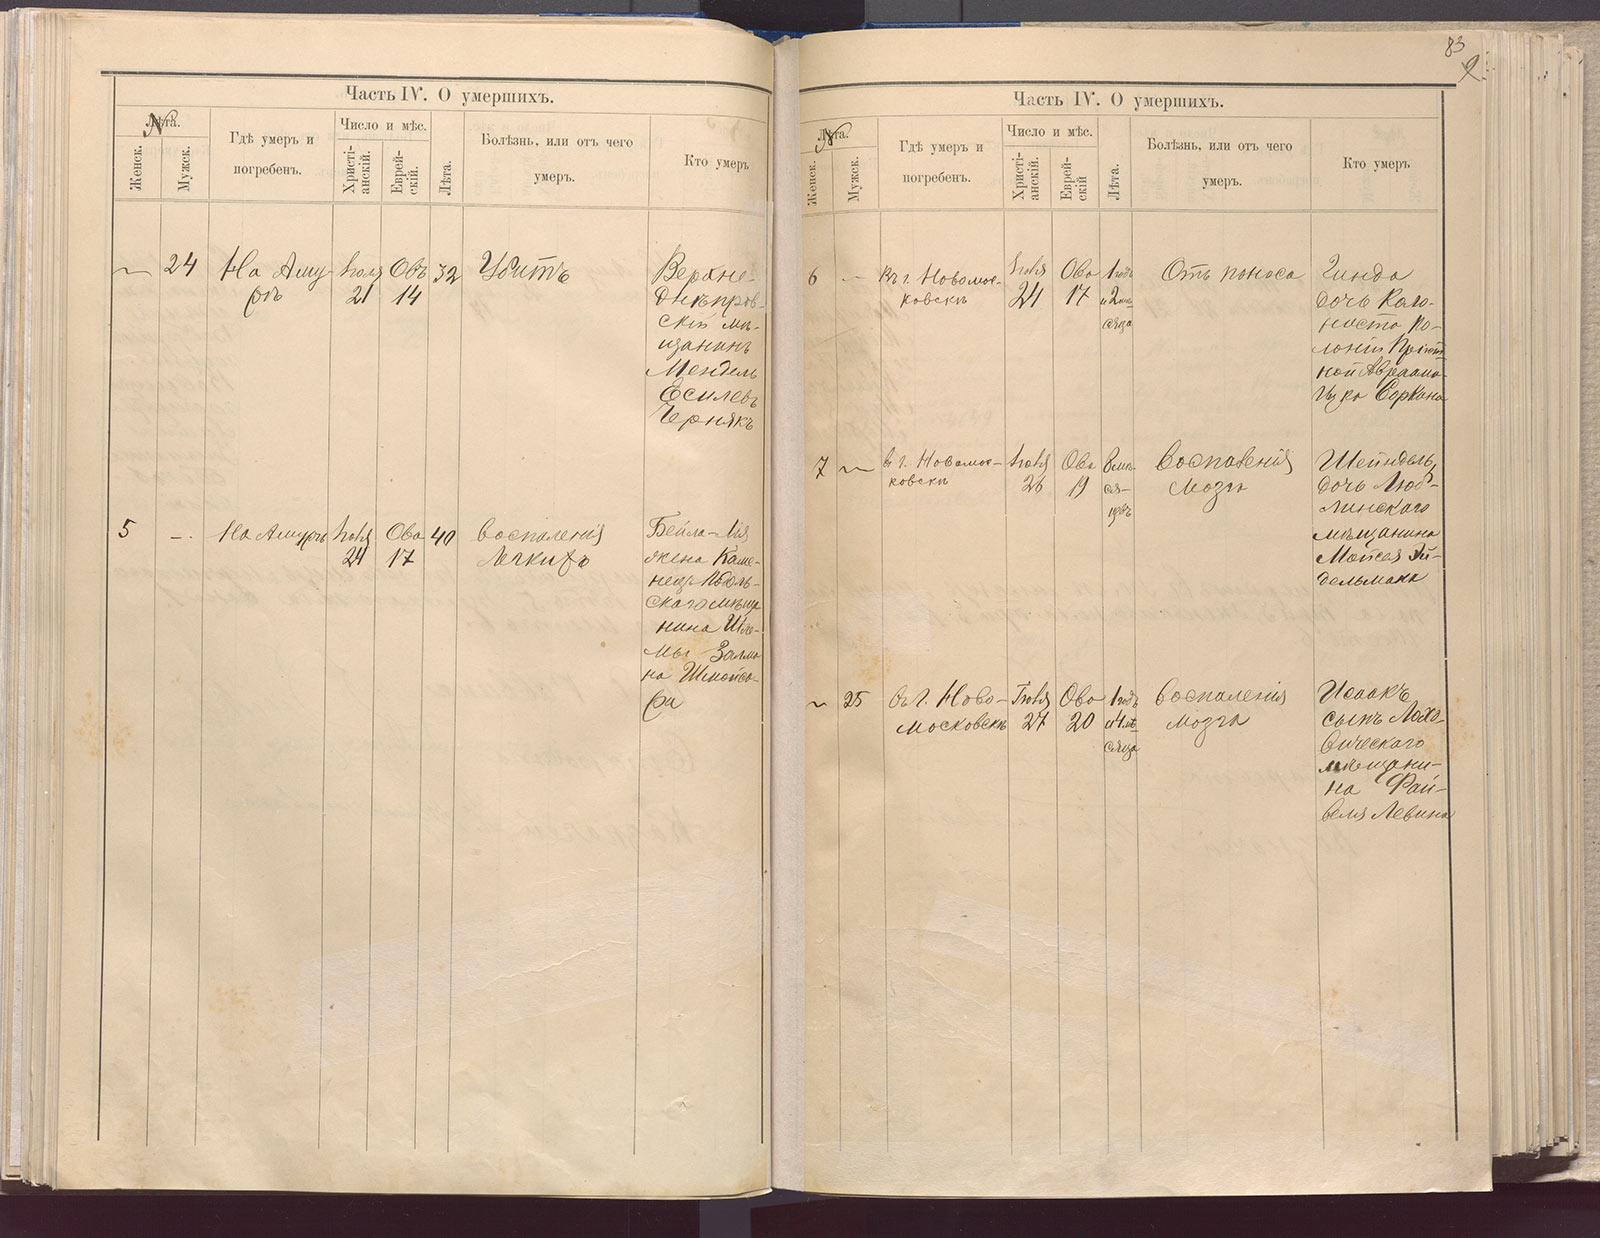 Часть IV. О умершихъ.
Лѣта.
№
Женск.
Мужск.
Гдѣ умеръ и
погребенъ.
Число и мѣс.
Христі-
анскій.
Еврей-
скій.
Лѣта.
Болѣзнь, или отъ чего
умеръ.
Кто умеръ
24
На Аму-
рѣ
Іюля
21
Овъ
14
32
Убитъ
Верхне-
днѣпров-
скій мѣ-
щанинъ
Мендель
Есилевъ
Чернякъ
5
На Амурѣ
Іюля
24
Ова
17
40
воспаленія
Бейла-Лія
жена Каме-
нецъ Подоль-
скаго мѣща
нина Шле-
мы Залма
на
ра
83
9
Часть IV. О умершихъ.
Лѣта.
№
Женск.
Мужск.
Гдѣ умеръ и
погребенъ.
Число и мѣс.
Христі-
анскій.
Еврей-
скій
Лѣта.
Болѣзнь, или отъ чего
умеръ.
Кто умеръ
6
Въ г. Новомос-
ковскѣ
Іюля
24
Ова
17
1 годъ
и 2 мѣ
сяца
Отъ поноса
Гинда
дочь Коло-
ниста ко-
лоніи Пріют
ной Авраама-
Ицка Соркина
7
въ г. Новомос-
ковскѣ
Іюля
26
Ова
19
8 мѣ-
ся-
цевъ
воспаленія
мозга
Шейндель,
дочь Люб-
линскаго
мѣщанина
Мойсея Эй-
дельмана
25
въ г. Ново-
московскѣ
Іюля
27
Ова
20
1 годъ
и 4 мѣ
сяца
воспаленія
мозга
Исаакъ
сынъ Лохо-
вическаго
мѣщани-
на Фай-
веля Левина